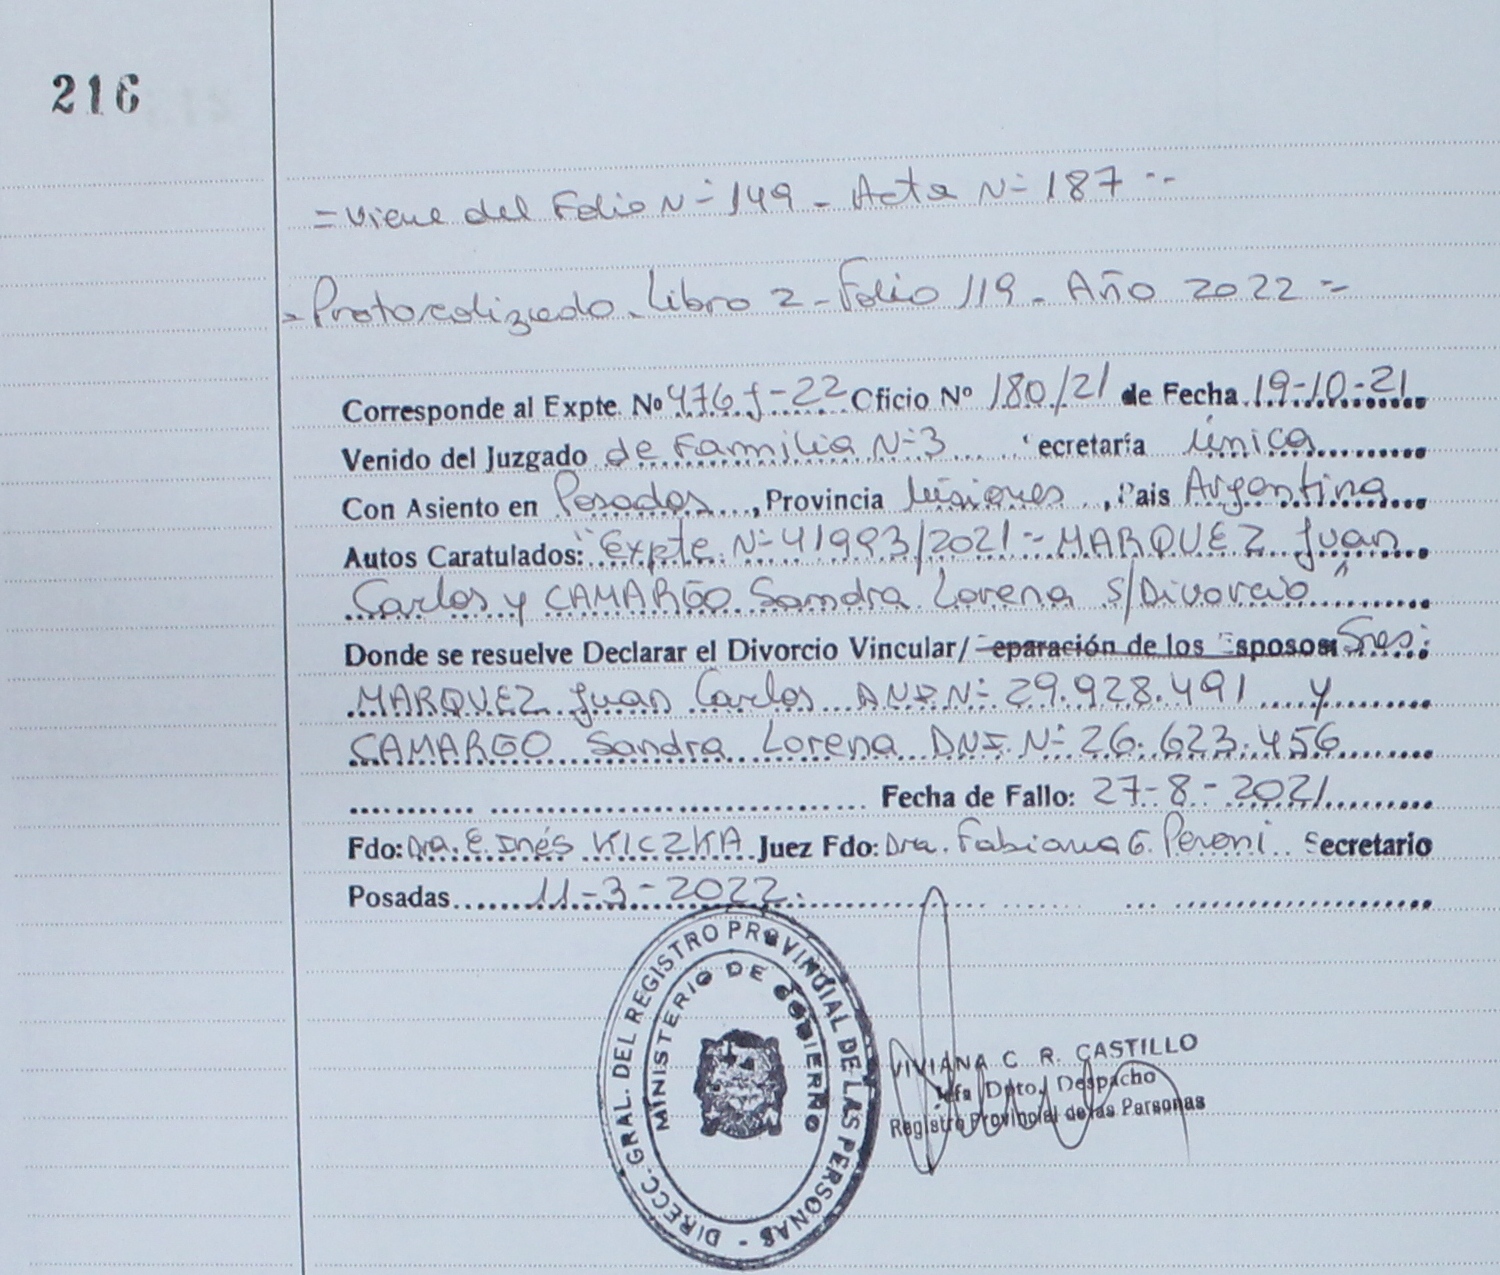 216
= Viene del Folio Nº 149 - Acta Nº 187 --
- Protocolizado - Libro 2 - Folio 119 - Año 2022 --
Corresponde al Expte. Nº 476 J-22 Oficio Nº 180/21 de Fecha 19-10-21
Venido del Juzgado de Familia Nº 3 Secretaría única
Con Asiento en Posadas, Provincia Misiones, Pais Argentina
Autos Caratulados: "Expte. Nº 41993/2021 - MARQUEZ Juan
Carlos y CAMARGO Sandra Lorena s/Divorcio"
Donde se resuelve Declarar el Divorcio Vincular/ Separación de los Esposos Sres:
MARQUEZ Juan Carlos D.N.I. Nº 29.928.491 y
CAMARGO Sandra Lorena DNI. Nº 26.623.456
Fecha de Fallo: 27-8-2021
Fdo: Dra. E. Inés KICZKA Juez Fdo: Dra. Fabiana G. Peroni Secretario
Posadas 11-3-2022.
DIRECC. GRAL. DEL REGISTRO PROVINCIAL DE LAS PERSONAS -
MINISTERIO DE GOBIERNO
VIVIANA C. R. CASTILLO
Jefa Dpto. Despacho
Registro Provincial de las Personas